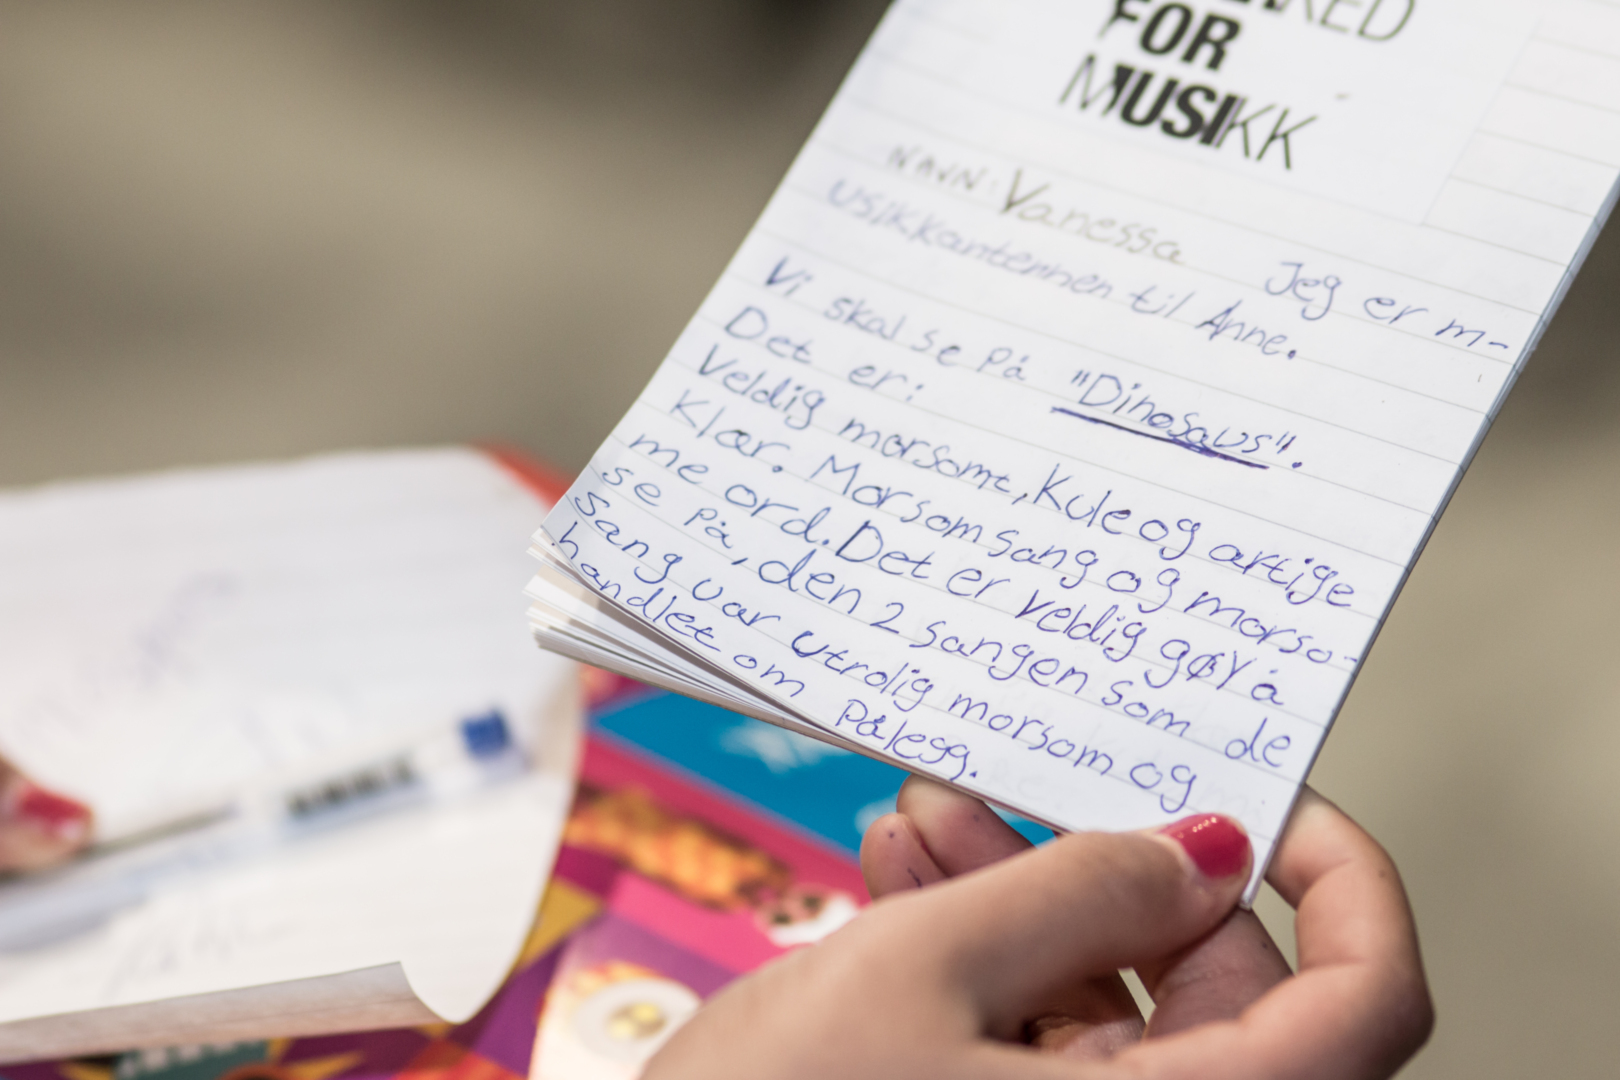 FOR
MUSIKK
NAVN: Vanessa Jeg er m-
usikkantennen til Anne.
Vi skal se på "Dinosaus".
Det er:
Veldig morsomt, Kule og artige
Klær. Morsom sang og morso-
me ord. Det er veldig gøy å
se på, den 2 sangen som de
sang var utrolig morsom og
handlet om Pålegg.